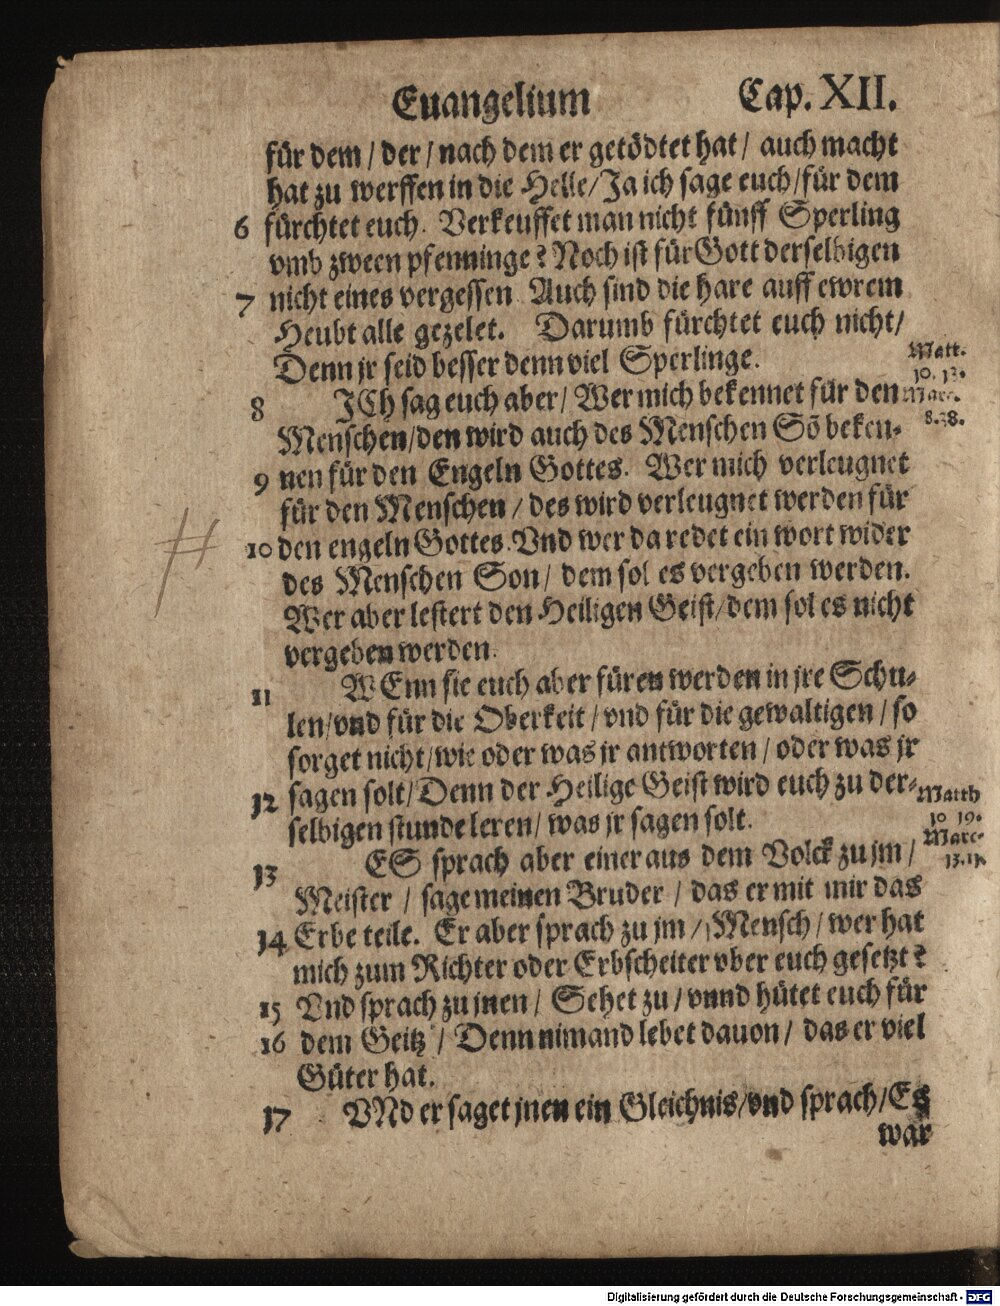 Euangelium Cap. XII.
für dem / der / nach dem er getödtet hat / auch macht
hat zu werffen in die Helle / Ja ich sage euch / für dem
6 fürchtet euch. Verkeuffet man nicht fünff Sperling
vmb zween pfenninge? Noch ist für Gott derselbigen
7 nicht eines vergessen Auch sind die hare auff ewrem
Heubt alle gezelet. Darumb fürchtet euch nicht /
Denn jr seid besser denn viel Sperlinge.
Matt.
10. 32.
8 JCh sag euch aber / Wer mich bekennet für den
Marc.
8. 38.
Menschen / den wird auch des Menschen Sō beken-
9 nen für den Engeln Gottes. Wer mich verleugnet
für den Menschen / des wird verleugnet werden für
10 den engeln Gottes. Vnd wer da redet ein wort wider
des Menschen Son / dem sol es vergeben werden.
Wer aber lestert den Heiligen Geist / dem sol es nicht
vergeben werden.
11 WEnn sie euch aber füren werden in jre Schu-
len / vnd für die Oberkeit / vnd für die gewaltigen / so
sorget nicht / wie oder was jr antworten / oder was jr
12 sagen solt / Denn der Heilige Geist wird euch zu der-
Matth
10 19.
selbigen stunde leren / was jr sagen solt.
Marc.
13. 11.
13 ES sprach aber einer aus dem Volck zu jm /
Meister / sage meinen Bruder / das er mit mir das
14 Erbe teile. Er aber sprach zu jm / Mensch / wer hat
mich zum Richter oder Erbscheiter vber euch gesetzt?
15 Vnd sprach zu jnen / Sehet zu / vnnd hütet euch für
16 dem Geitz / Denn nimand lebet dauon / das er viel
Güter hat.
17 VNd er saget jnen ein Gleichnis / vnd sprach / Es
war
Digitalisierung gefördert durch die Deutsche Forschungsgemeinschaft - DFG